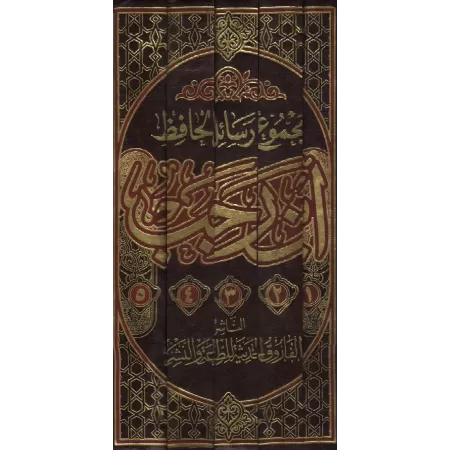 مجموع رسائل الحافظ
ابن رجب
١ ٢ ٣ ٤ ٥
الناشر
الفاروق الحديثة للطباعة والنشر